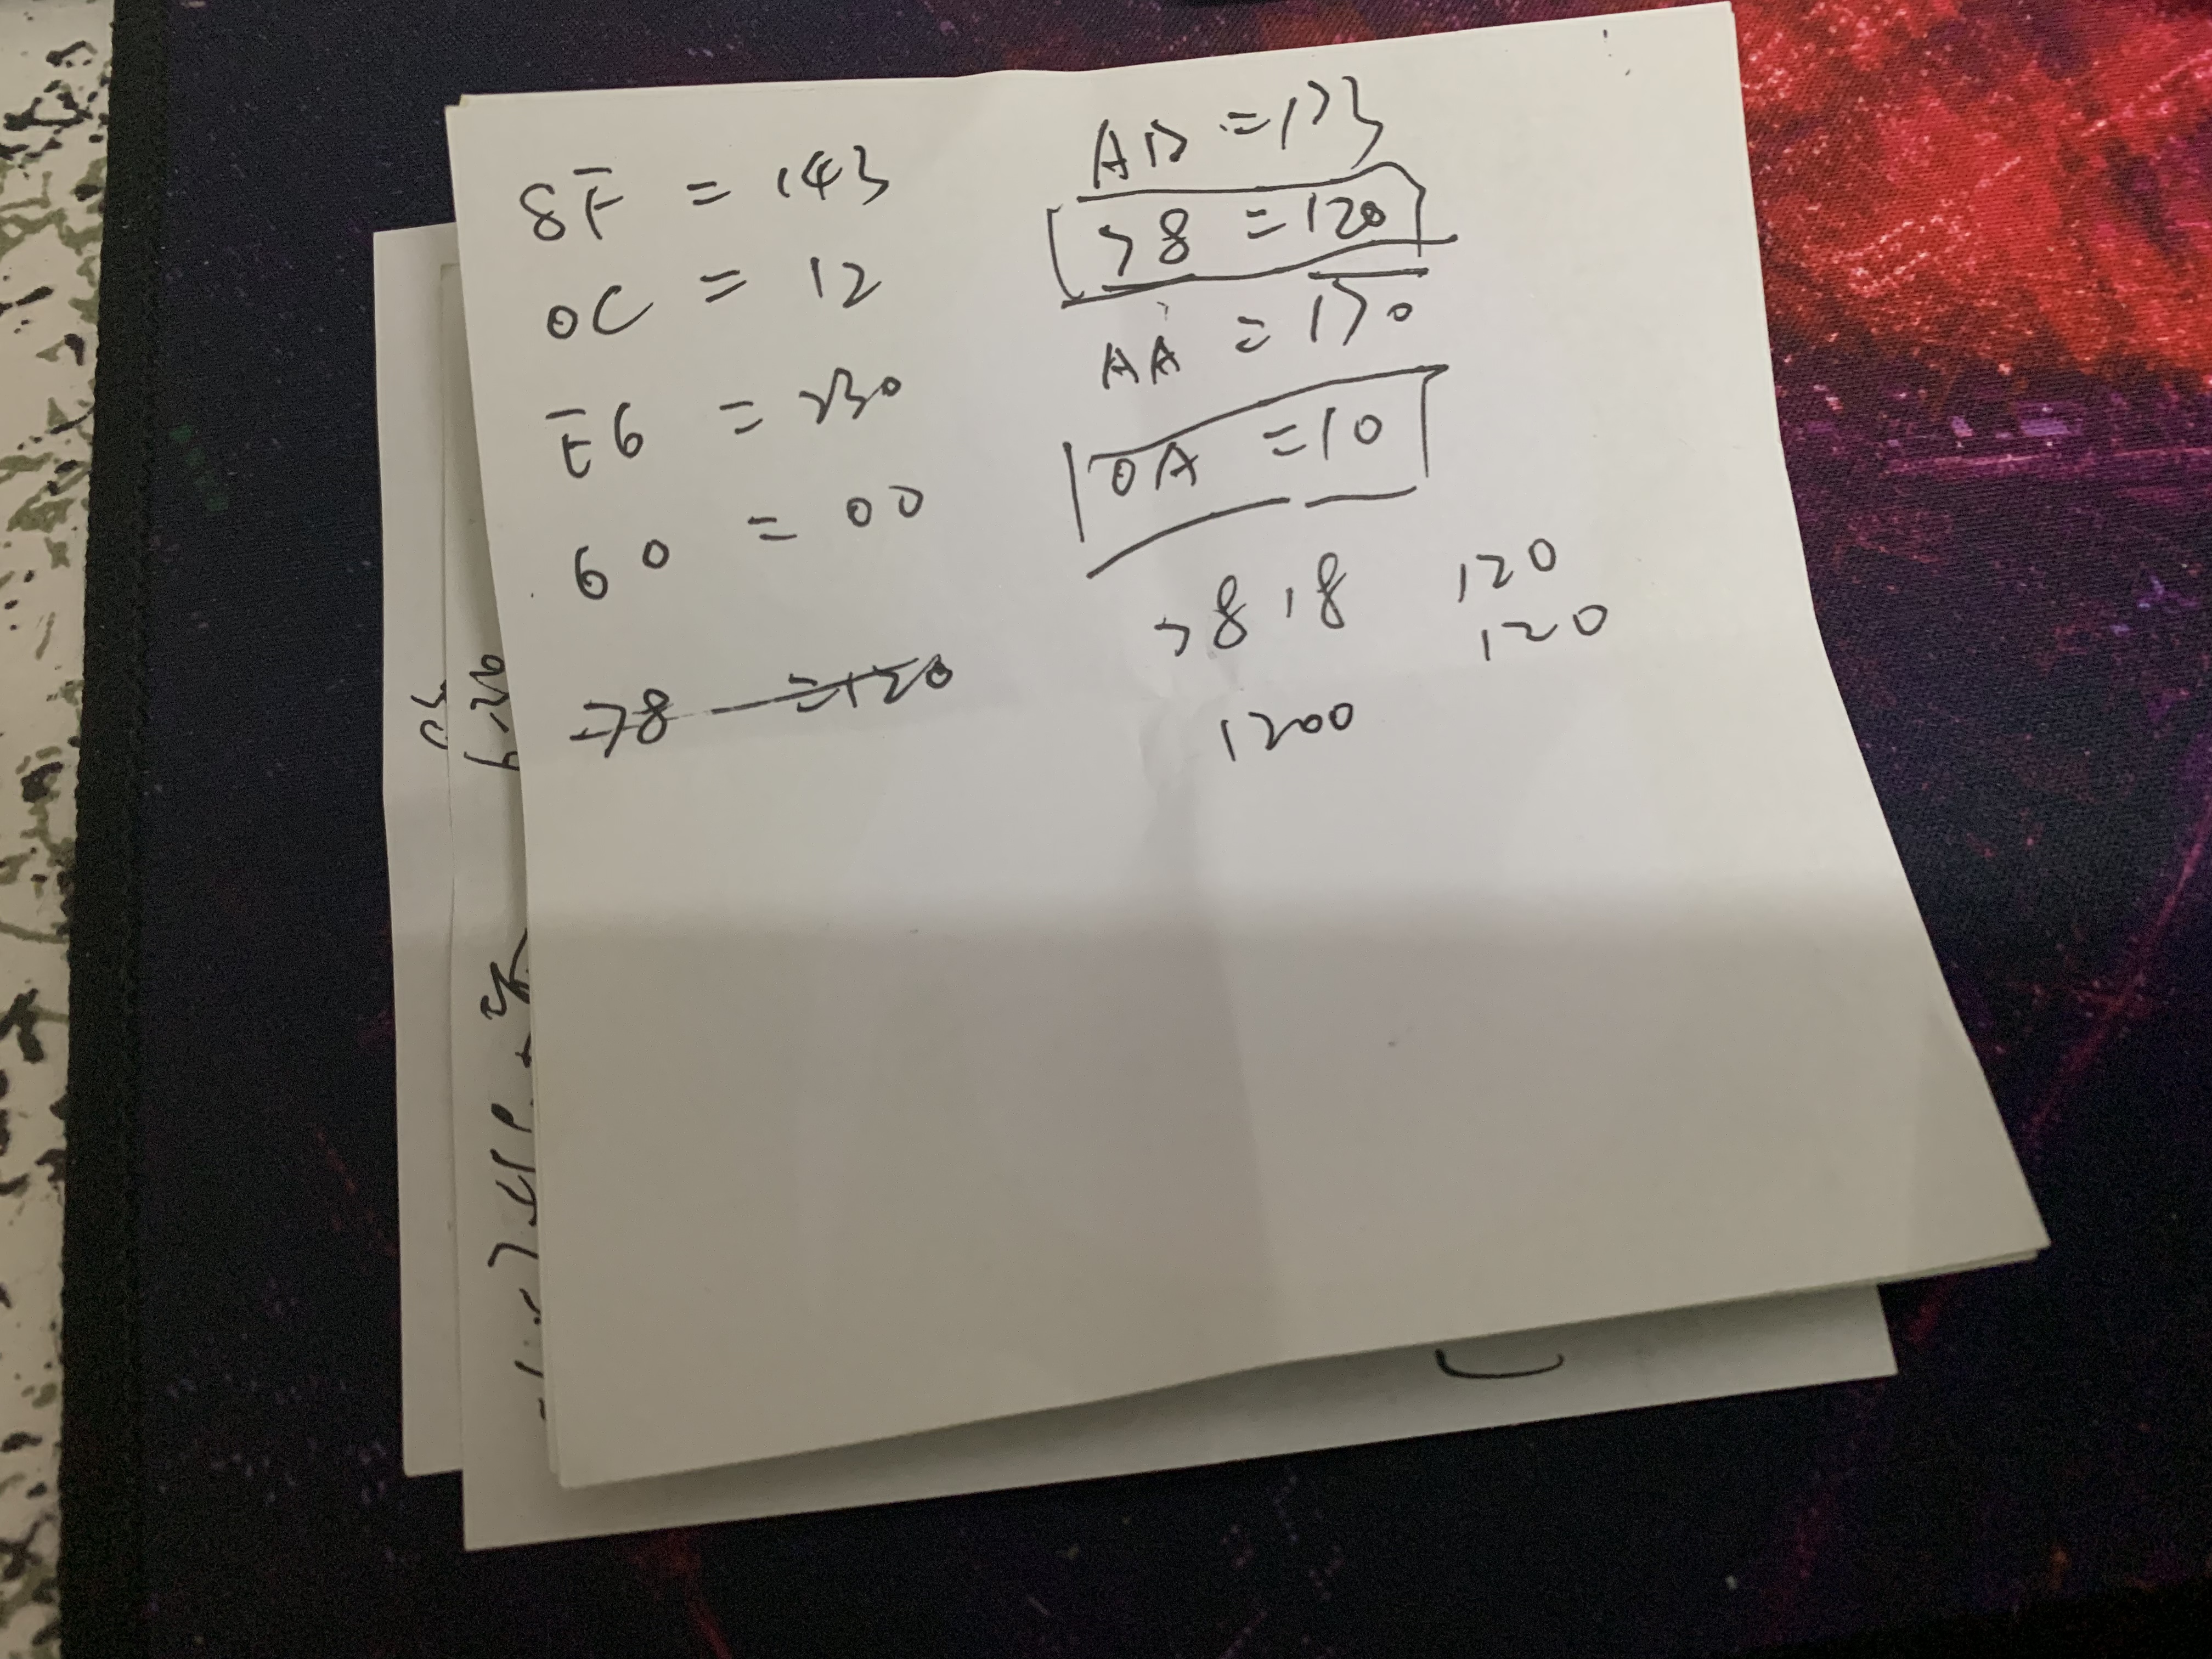 8F = 143
0C = 12
E6 = 230
60 = 00
78 = 120
AD = 173
78 = 120
AA = 170
0A = 10
78 18 120
120
1200